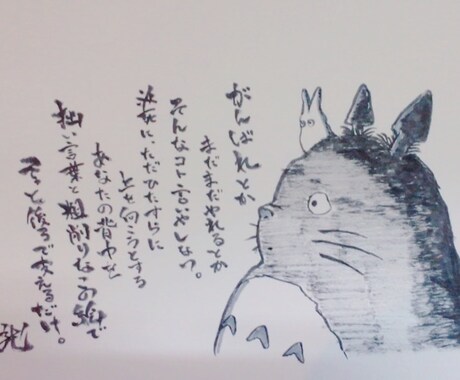 がんばれとか
まだまだやれるとか
そんなコト言いやしない。
必死に、ただひたすらに
上を向こうとする
あなたの背中を
拙い言葉と粗削りなこの絵で
そっと後ろで支えるだけ。